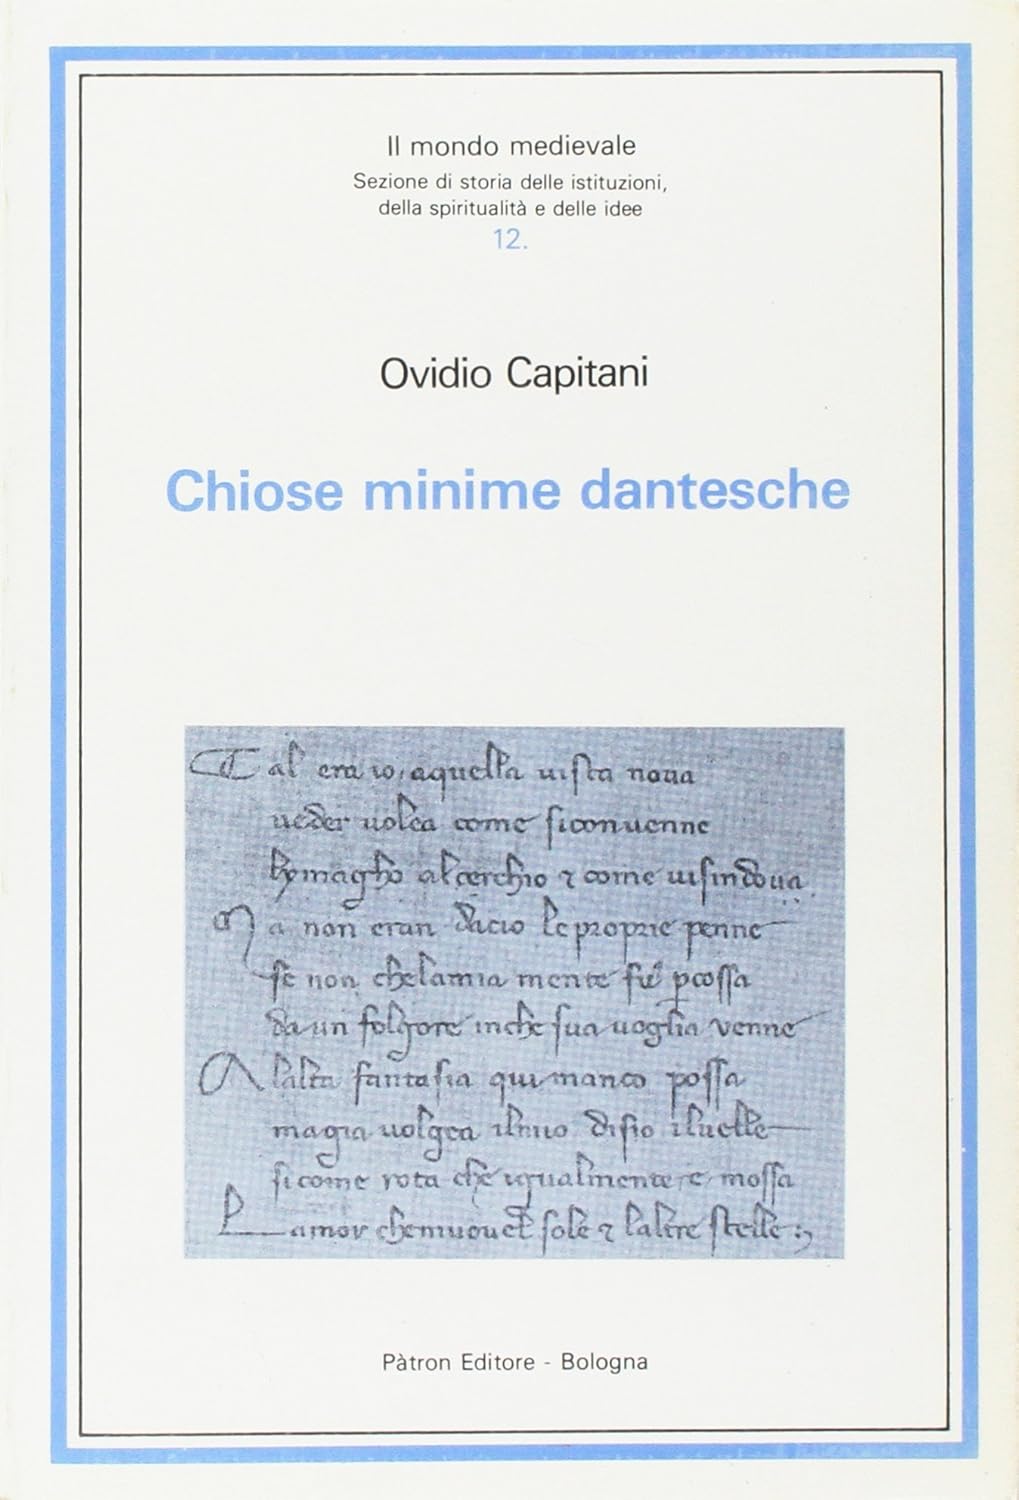 Il mondo medievale
Sezione di storia delle istituzioni,
della spiritualità e delle idee
12.
Ovidio Capitani
Chiose minime dantesche
Tal era io, aquella uista noua
ueder uolea come siconuenne
lymagho alcerchio 7 come uisindoua
Ma non eran dacio le proprie penne
se non chelamia mente fu pcossa
da un folgore inche sua uoglia venne
Alalta fantasia qui manco possa
magia uolgea ilmio disio iluelle
sicome rota che igualmente, e, mossa
Lamor chemuouel sole 7 laltre stelle :,
Pàtron Editore - Bologna